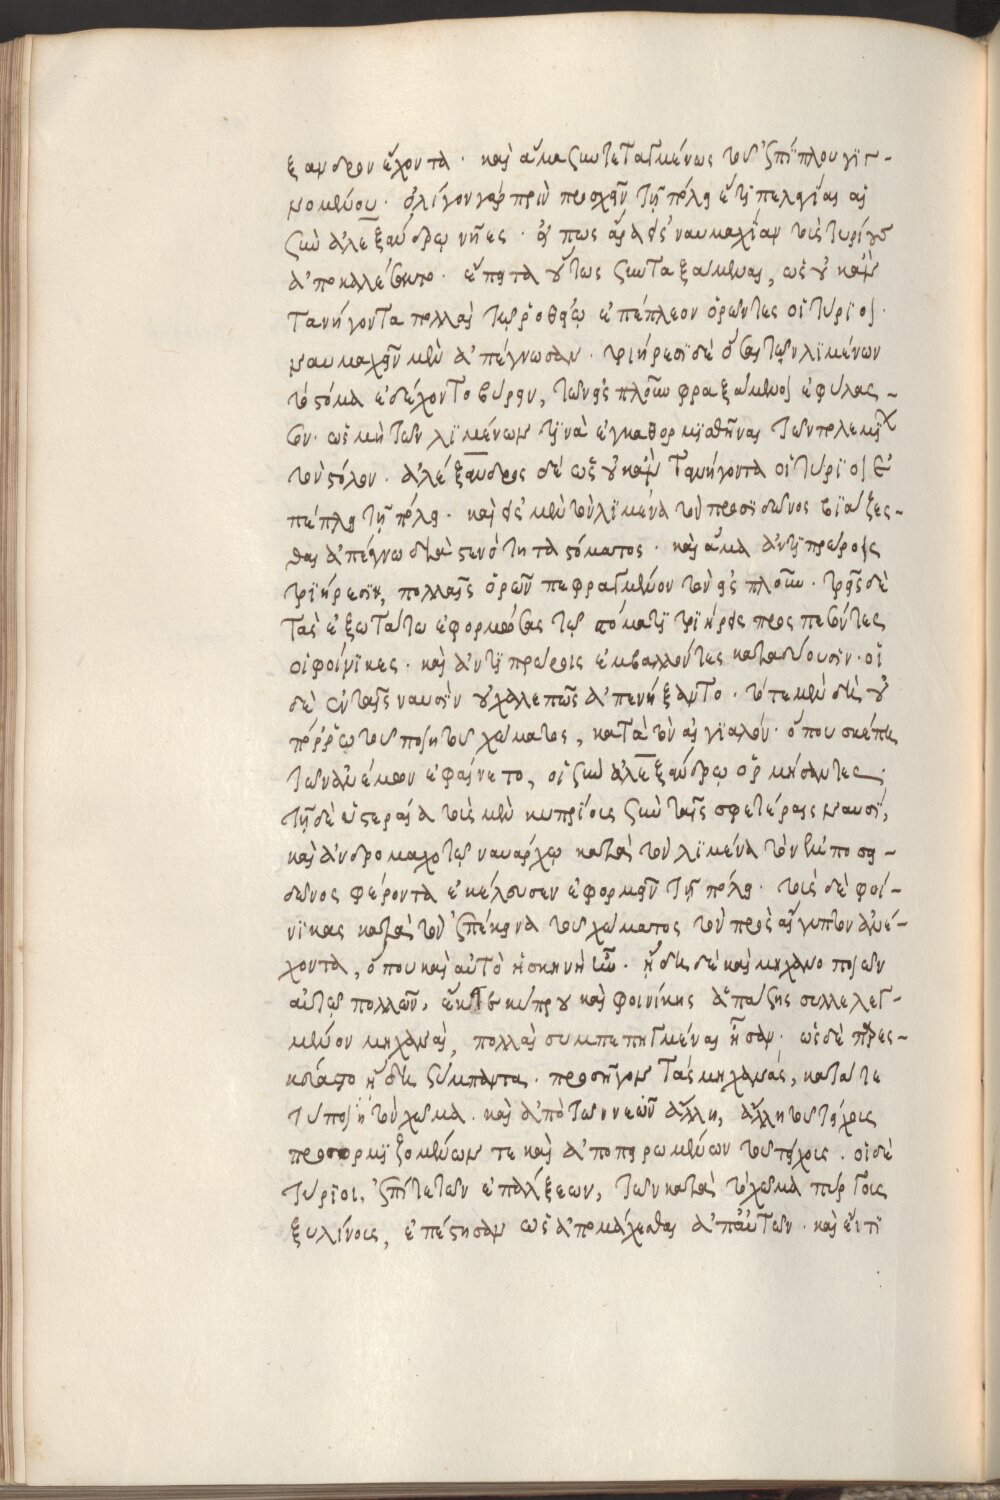 ξανδρον ἔχοντα · καὶ ἅμα ξυντεταγμένως τοῦ ἐπίπλου γιγ-
νομένου · ὀλίγον γὰρ πρὶν προσχεῖν τῇ πόλει ἔτι πελαγίας αἱ
ξὺν ἀλεξάνδρῳ νῆες · εἴ πως ἄρα ἐς ναυμαχίαν τοὺς τυρίους
ἀποκαλέσαιντο · ἔπειτα οὕτως ξυνταξάμεναι, ὡς οὐκ ἀν-
τανήγοντο πολλῷ τῷ ῥοθίῳ ἐπέπλεον ὁρῶντες οἱ τύριοι ·
ναυμαχεῖν μὲν ἀπέγνωσαν · τριήρεσι δὲ ὅσας τῶν λιμένων
τὸ στόμα ἐδέχοντο βύζην, τὸν ἔσπλουν φραξάμενοι ἐφύλασ-
σον · ὡς μὴ τῶν λιμένων τινὰ ἐγκαθορμισθῆναι τῶν πολεμίων
τὸν στόλον · ἀλέξανδρος δὲ ὡς οὐκ ἀντανήγοντο οἱ τύριοι ἐ-
πέπλει τῇ πόλει · καὶ ἐς μὲν τὸν λιμένα τὸν πρὸς σιδῶνος βιάζεσ-
θαι ἀπέγνω διὰ στενότητα στόματος · καὶ ἅμα ἀντιπρώροις
τριήρεσιν, πολλαῖς ὁρῶν πεφραγμένον τὸν ἔσπλουν · τρεῖς δὲ
τὰς ἐξωτάτω ἐφορμούσας τῷ στόματι τριήρεις προσπεσόντες
οἱ φοίνικες · καὶ ἀντιπρώροις ἐμβαλλόντες καταδύουσιν · οἱ
δὲ ἐν ταῖς ναυσὶν οὐ χαλεπῶς ἀπενήξαντο · τότε μὲν δὴ οὐ
πόρρω τοῦ ποιητοῦ χώματος, κατὰ τὸν αἰγιαλόν · ὅπου σκέπη
τῶν ἀνέμων ἐφαίνετο, οἱ ξὺν ἀλεξάνδρῳ ὁρμήσαντες ·
τῇ δὲ ὑστεραίᾳ τοὺς μὲν κυπρίους ξὺν ταῖς σφετέραις ναυσί,
καὶ ἀνδρομάχῳ τῷ ναυάρχῳ κατὰ τὸν λιμένα τὸν ἐκ πο σει-
δῶνος φέροντα ἐκέλευσεν ἐφορμεῖν τῇ πόλει · τοὺς δὲ φοί-
νικας κατὰ τὸν ἐπέκεινα τοῦ χώματος τὸν πρὸς αἴγυπτον ἀνέ-
χοντα, ὅπου καὶ αὐτὸ ἡ σκηνὴ ἦν · ἤδη δὲ καὶ μηχανοποιῶν
αὐτῷ πολλῶν, ἔκ τε κύπρου καὶ φοινίκης ἁπάσης συλλελεγ-
μένον μηχαναί, πολλαὶ συμπεπηγμέναι ἦσαν · ὡς δὲ παρεσ-
κεύαστο ἤδη ξύμπαντα · προσῆγον τὰς μηχανάς, κατά τε
τὸ ποιητὸν χῶμα · καὶ ἀπὸ τῶν νεῶν ἄλλη, ἄλλῃ τοῦ τείχους
προσορμιζομένων τε καὶ ἀποπειρωμένων τοῦ τείχους · οἱ δὲ
τύριοι, ἐπί τε τῶν ἐπάλξεων, τῶν κατὰ τὸ χῶμα πύργους
ξυλίνους, ἐπέστησαν ὡς ἀπομάχεσθαι ἀπ' αὐτῶν · καὶ εἴ τι